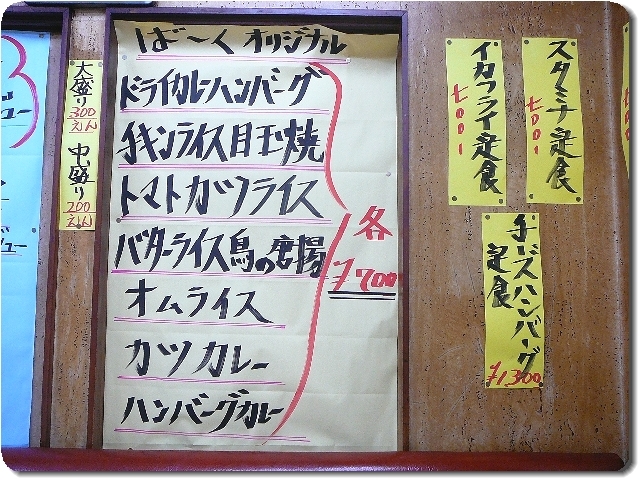 ば〜く オリジナル
ドライカレーハンバーグ
チキンライス目玉焼
トマトカツライス
バターライス鳥の唐揚
オムライス
カツカレー
ハンバーグカレー
各
¥700
大盛り
300
えん
中盛り
200
えん
イカフライ定食
スタミナ定食
チーズハンバーグ
定食
¥1300